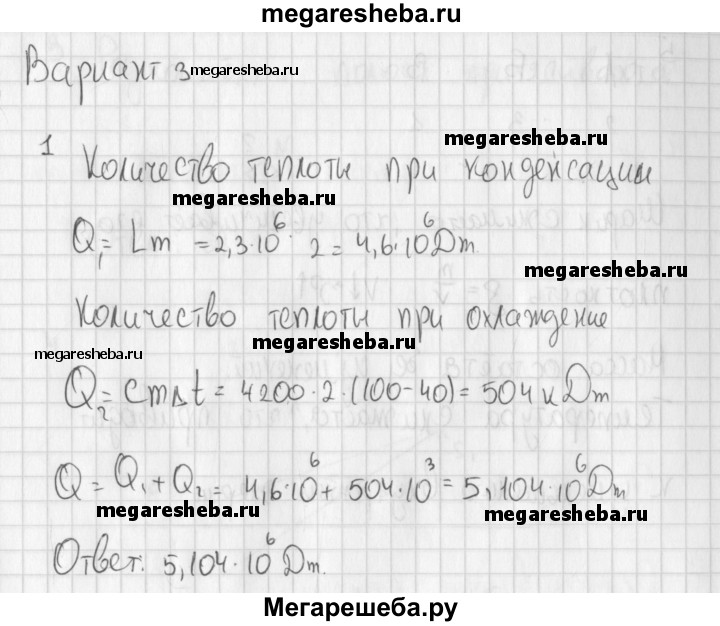 megaresheba.ru
Вариант 3 megaresheba.ru
1
megaresheba.ru
Количество теплоты при конденсации
megaresheba.ru
Q₁ = Lm = 2,3·10⁶ · 2 = 4,6·10⁶ Dm
megaresheba.ru
Количество теплоты при охлаждение
megaresheba.ru
megaresheba.ru
Q₂ = cmΔt = 4200·2·(100-40) = 504 кDm
Q = Q₁ + Q₂ = 4,6·10⁶ + 504·10³ = 5,104·10⁶ Dm
megaresheba.ru
megaresheba.ru
Ответ: 5,104·10⁶ Dm.
Мегарешеба.ру